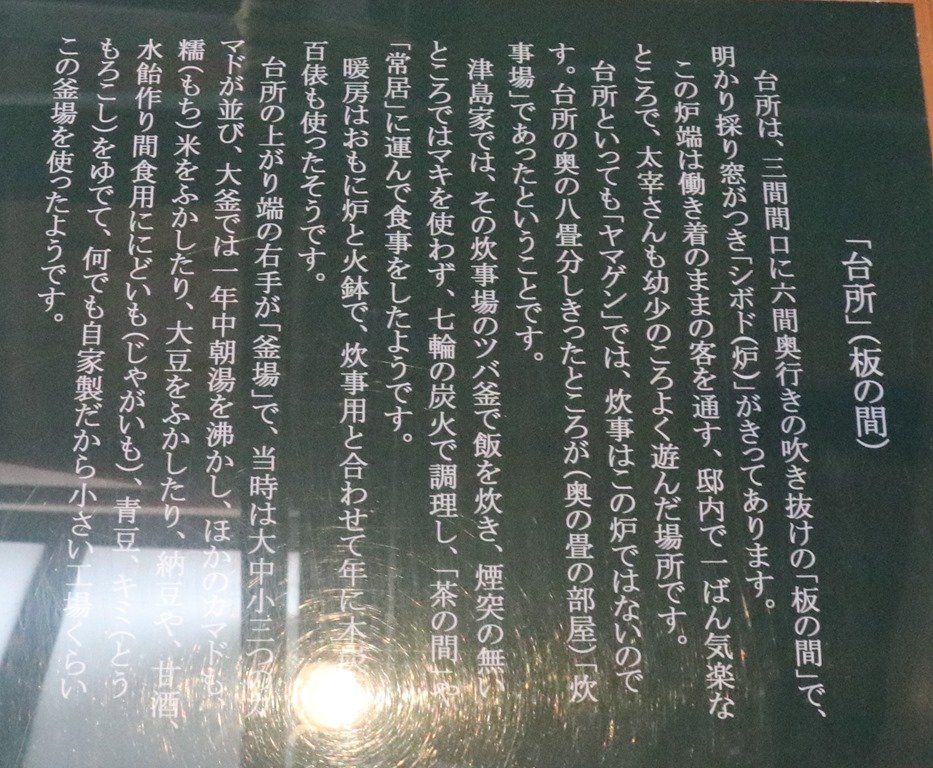 「台所」（板の間）
台所は、三間間口に六間奥行きの吹き抜けの「板の間」で、
明かり採り窓がつき「シボド（炉）」がきってあります。
この炉端は働き着のままの客を通す、邸内で一ばん気楽な
ところで、太宰さんも幼少のころよく遊んだ場所です。
台所といっても「ヤマゲン」では、炊事はこの炉ではないので
す。台所の奥の八畳分しきったところが（奥の畳の部屋）「炊
事場」であったということです。
津島家では、その炊事場のツバ釜で飯を炊き、煙突の無い
ところではマキを使わず、七輪の炭火で調理し、「茶の間」や
「常居」に運んで食事をしたようです。
暖房はおもに炉と火鉢で、炊事用と合わせて年に木炭
百俵も使ったそうです。
台所の上がり端の右手が「釜場」で、当時は大中小三つのカ
マドが並び、大釜では一年中朝湯を沸かし、ほかのカマドも、
糯（もち）米をふかしたり、大豆をふかしたり、納豆や、甘酒、
水飴作り間食用ににどいも（じゃがいも）、青豆、キミ（とう
もろこし）をゆでて、何でも自家製だから小さい工場くらい
この釜場を使ったようです。